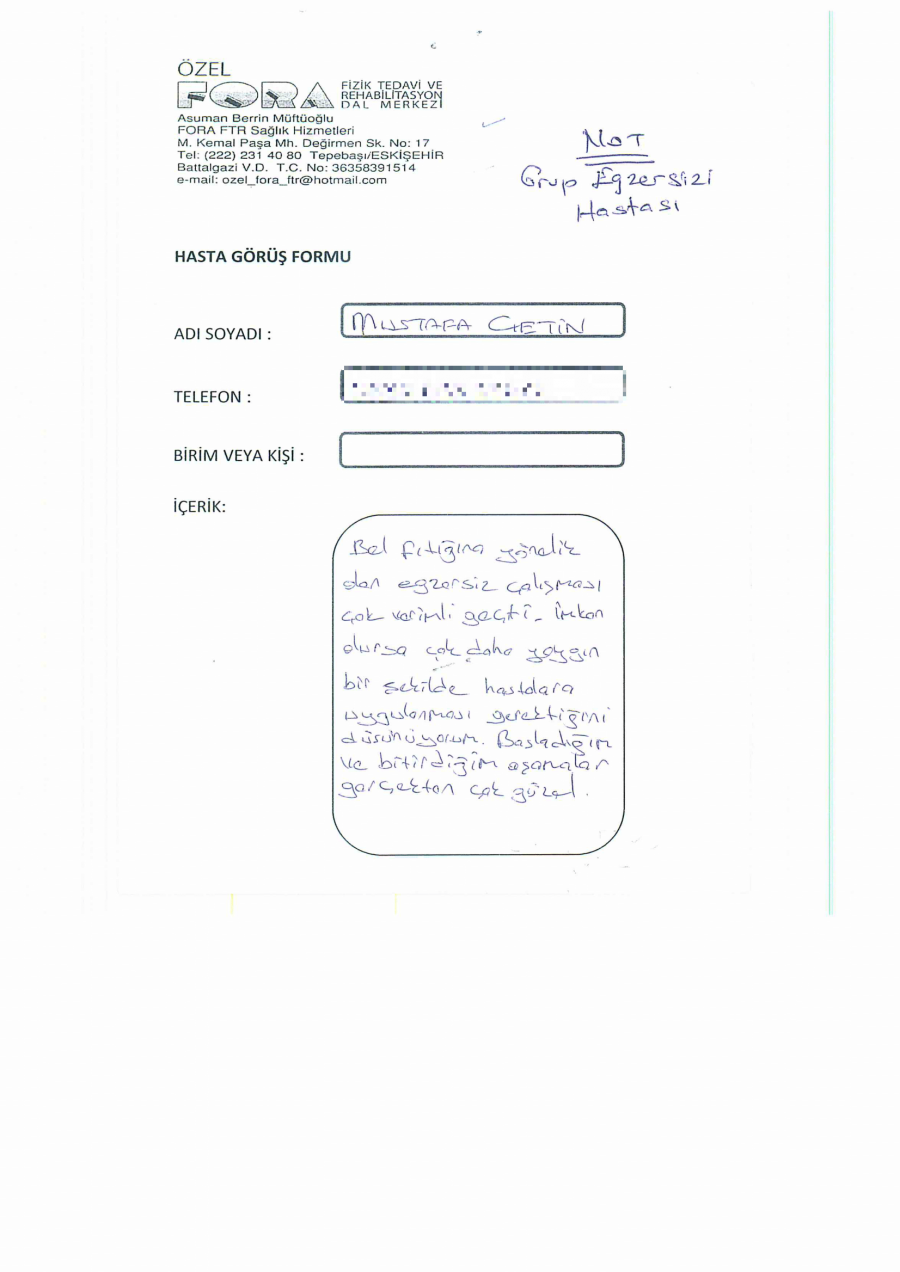 ÖZEL
FORA FİZİK TEDAVİ VE
REHABİLİTASYON
DAL MERKEZİ
Asuman Berrin Müftüoğlu
FORA FTR Sağlık Hizmetleri
M. Kemal Paşa Mh. Değirmen Sk. No: 17
Tel: (222) 231 40 80 Tepebaşı/ESKİŞEHİR
Battalgazi V.D. T.C. No: 36358391514
e-mail: ozel_fora_ftr@hotmail.com
NOT
Grup Egzersizi
Hastası
HASTA GÖRÜŞ FORMU
ADI SOYADI : MUSTAFA ÇETİN
TELEFON :
BİRİM VEYA KİŞİ :
İÇERİK:
Bel fıtığına yönelik
olan egzersiz çalışması
çok verimli geçti. İmkan
olursa çok daha yaygın
bir şekilde hastalara
uygulanması gerektiğini
düşünüyorum. Başladığım
ve bitirdiğim aşamalar
gerçekten çok güzel.